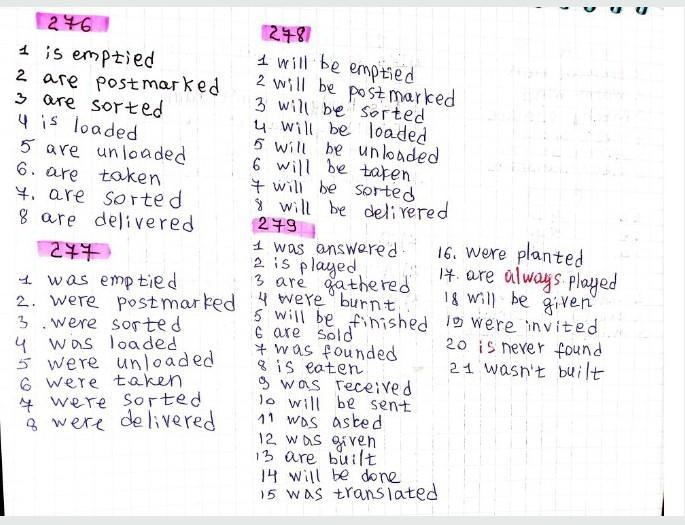 276
1 is emptied
2 are postmarked
3 are sorted
4 is loaded
5 are unloaded
6. are taken
7. are sorted
8 are delivered
277
1 was emptied
2. were postmarked
3. were sorted
4 was loaded
5 were unloaded
6 were taken
7 were sorted
8 were delivered
278
1 will be emptied
2 will be postmarked
3 will be sorted
4 will be loaded
5 will be unloaded
6 will be taken
7 will be sorted
8 will be delivered
279
1 was answered
2 is played
3 are gathered
4 were burnt
5 will be finished
6 are sold
7 was founded
8 is eaten
9 was received
10 will be sent
11 was asked
12 was given
13 are built
14 will be done
15 was translated
16. were planted
17. are always played
18 will be given
19 were invited
20 is never found
21 wasn't built